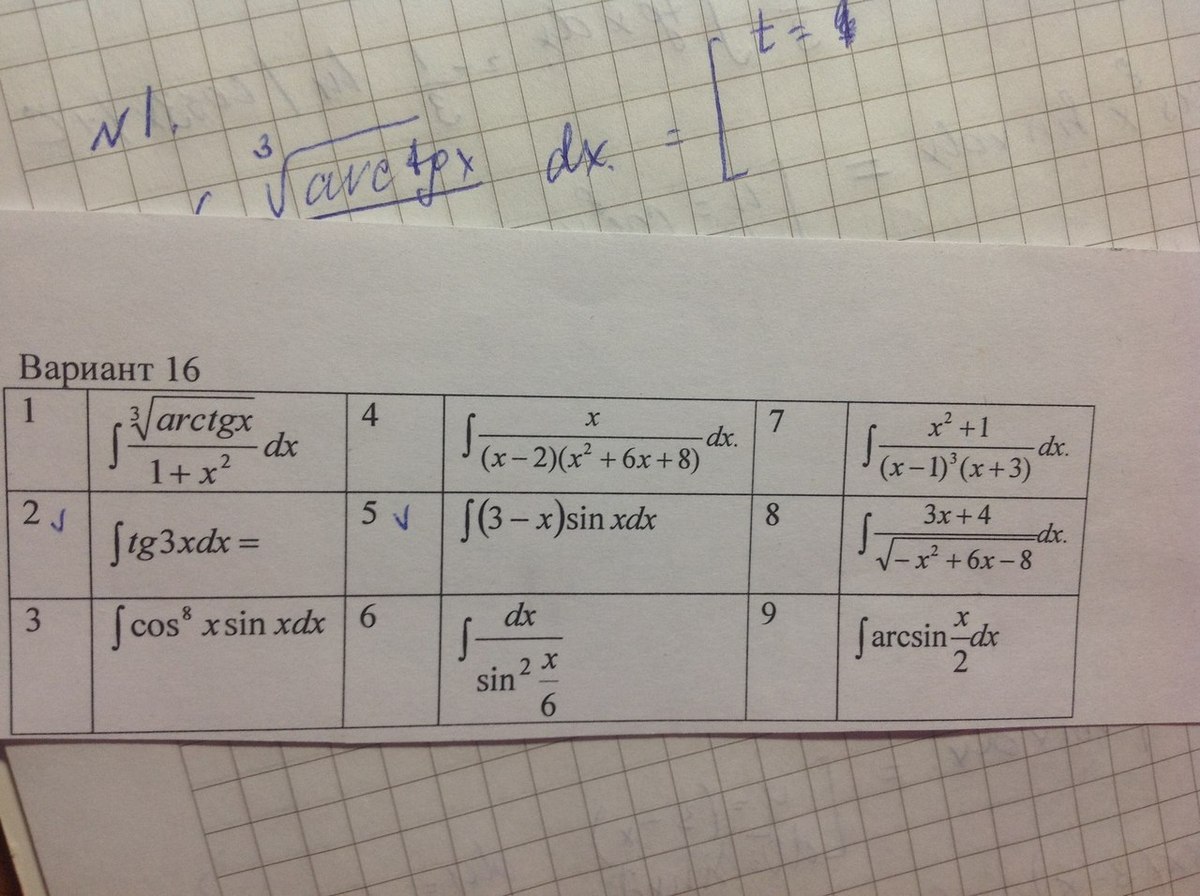 t =
N 1.
∛arctgx dx. =
Вариант 16
1 ∫ ∛arctgx / (1 + x²) dx
4 ∫ x / ((x – 2)(x² + 6x + 8)) dx.
7 ∫ (x² + 1) / ((x – 1)³(x + 3)) dx.
2 ∫tg3xdx =
5 ∫(3 – x)sin xdx
8 ∫ (3x + 4) / √(– x² + 6x – 8) dx.
3 ∫cos⁸ x sin xdx
6 ∫ dx / sin² (x / 6)
9 ∫arcsin (x / 2) dx